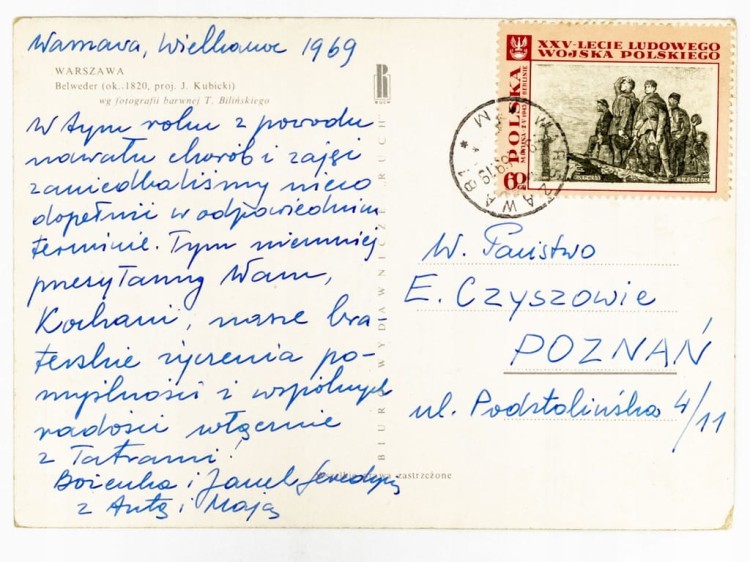 Warszawa, Wielkanoc 1969
WARSZAWA
Belweder (ok. 1820, proj. J. Kubicki)
wg fotografii barwnej T. Bilińskiego
W tym roku z powodu
nawału chorób i zajęć
zaniedbaliśmy nieco
dopełnić w odpowiednim
terminie. Tym niemniej
przesyłamy Wam,
Kochani, nasze bra-
terskie życzenia po-
myślności i wspólnych
radości włącznie
z Tatrami!
Bożenka i Janek
z Antą i Mają
BIURO WYDAWNICZE RUCH
zastrzeżone
XXV-LECIE LUDOWEGO
WOJSKA POLSKIEGO
POLSKA
60 GR
WARSZAWA 81
W. Państwo
E. Czyszowie
POZNAŃ
ul. Podstolińska 4/11